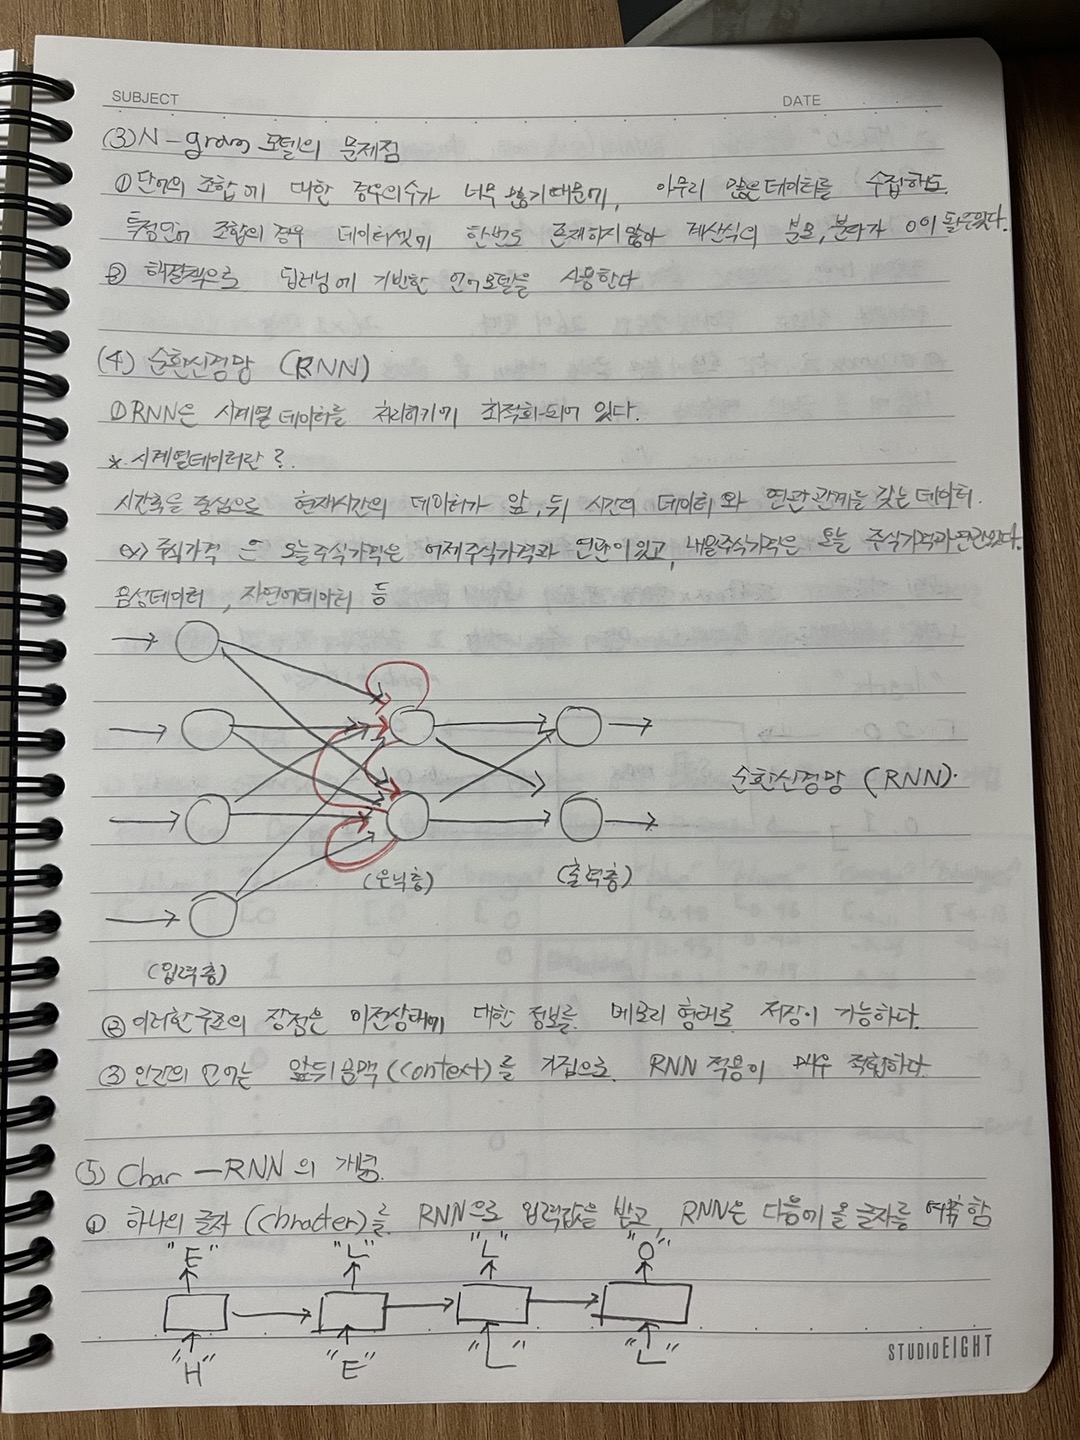 SUBJECT
DATE
(3) N-gram 모델의 문제점
① 단어의 조합에 대한 경우의수가 너무 많기때문에, 아무리 많은 데이터를 수집해도
특정단어 조합의 경우 데이터셋에 한번도 존재하지않아 계산식의 분모, 분자가 0이 될수있다.
② 해결책으로 딥러닝에 기반한 언어모델을 사용한다
(4) 순환신경망 (RNN)
① RNN은 시계열 데이터를 처리하기에 최적화되어 있다.
* 시계열데이터란?
시간축을 중심으로 현재시간의 데이터가 앞, 뒤 시간의 데이터와 연관 관계를 갖는 데이터.
ex) 주식가격 은 오늘주식가격은 어제주식가격과 연관이있고, 내일주식가격은 오늘 주식가격과연관있다.
음성데이터, 자연어데이터 등
순환신경망 (RNN).
(은닉층)
(출력층)
(입력층)
② 이러한구조의 장점은 이전상태에 대한 정보를 메모리 형태로 저장이 가능하다.
③ 인간의 언어는 앞뒤 문맥(context)를 가짐으로 RNN 적용이 매우 적합하다.
(5) Char-RNN의 개념.
① 하나의 글자 (chracter)를 RNN으로 입력값을 받고, RNN은 다음에 올 글자를 예측함
"E" "L" "L" "O"
"H" "E" "L" "L"
STUDIO EIGHT